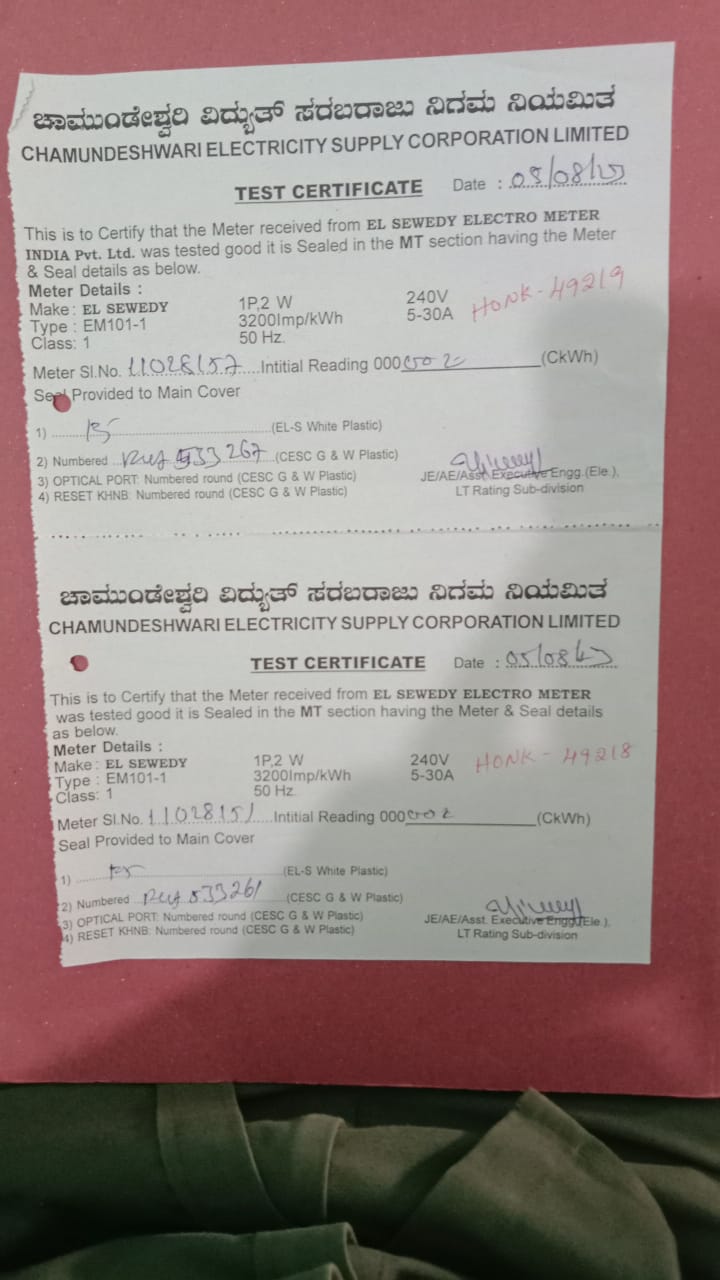 ಚಾಮುಂಡೇಶ್ವರಿ ವಿದ್ಯುತ್ ಸರಬರಾಜು ನಿಗಮ ನಿಯಮಿತ
CHAMUNDESHWARI ELECTRICITY SUPPLY CORPORATION LIMITED
TEST CERTIFICATE Date :
This is to Certify that the Meter received from EL SEWEDY ELECTRO METER
INDIA Pvt. Ltd. was tested good it is Sealed in the MT section having the Meter
& Seal details as below.
Meter Details :
Make : EL SEWEDY 1P,2 W 240V HONK - 49219
Type : EM101-1 3200Imp/kWh 5-30A
Class: 1 50 Hz.
Meter Sl.No. 11028157 Intitial Reading 000 002 (CkWh)
Seal Provided to Main Cover
1) (EL-S White Plastic)
2) Numbered 533267 (CESC G & W Plastic)
3) OPTICAL PORT: Numbered round (CESC G & W Plastic) JE/AE/Asst. Executive Engg.(Ele.),
4) RESET KHNB: Numbered round (CESC G & W Plastic) LT Rating Sub-division
ಚಾಮುಂಡೇಶ್ವರಿ ವಿದ್ಯುತ್ ಸರಬರಾಜು ನಿಗಮ ನಿಯಮಿತ
CHAMUNDESHWARI ELECTRICITY SUPPLY CORPORATION LIMITED
TEST CERTIFICATE Date :
This is to Certify that the Meter received from EL SEWEDY ELECTRO METER
was tested good it is Sealed in the MT section having the Meter & Seal details
as below.
Meter Details :
Make : EL SEWEDY 1P,2 W 240V HONK - 49218
Type : EM101-1 3200Imp/kWh 5-30A
Class: 1 50 Hz.
Meter Sl.No. 11028151 Intitial Reading 000 002 (CkWh)
Seal Provided to Main Cover
1) (EL-S White Plastic)
2) Numbered 533261 (CESC G & W Plastic)
3) OPTICAL PORT: Numbered round (CESC G & W Plastic) JE/AE/Asst. Executive Engg.(Ele.),
4) RESET KHNB: Numbered round (CESC G & W Plastic) LT Rating Sub-division